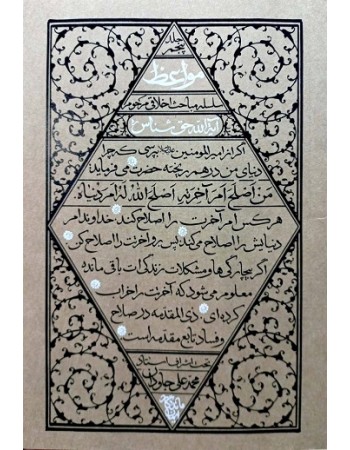 جلد پنجم
مواعظ
سلسله مباحث اخلاقی مرحوم
آیة الله حق شناس
اگر از امیرالمومنین علیه‌السلام بپرسی که چرا
دنیای من درهم ریخته حضرت می فرماید
مَن اَصْلَحَ اَمرَ آخِرَتِهِ اَصْلَحَ اللهُ لَهُ اَمرَ دُنیاهُ.
هر کس امر آخرت را اصلاح کند، خداوند امر
دنیایش را اصلاح می کند پس برو آخرتت را اصلاح کن.
اگر بیچارگی ها و مشکلات زندگی ات باقی مانده
معلوم می شود که آخرتت را خراب
کرده ای ذی المقدمه در صلاح
و فساد تابع مقدمه است
تحت اشراف استاد
محمد علی جاودان